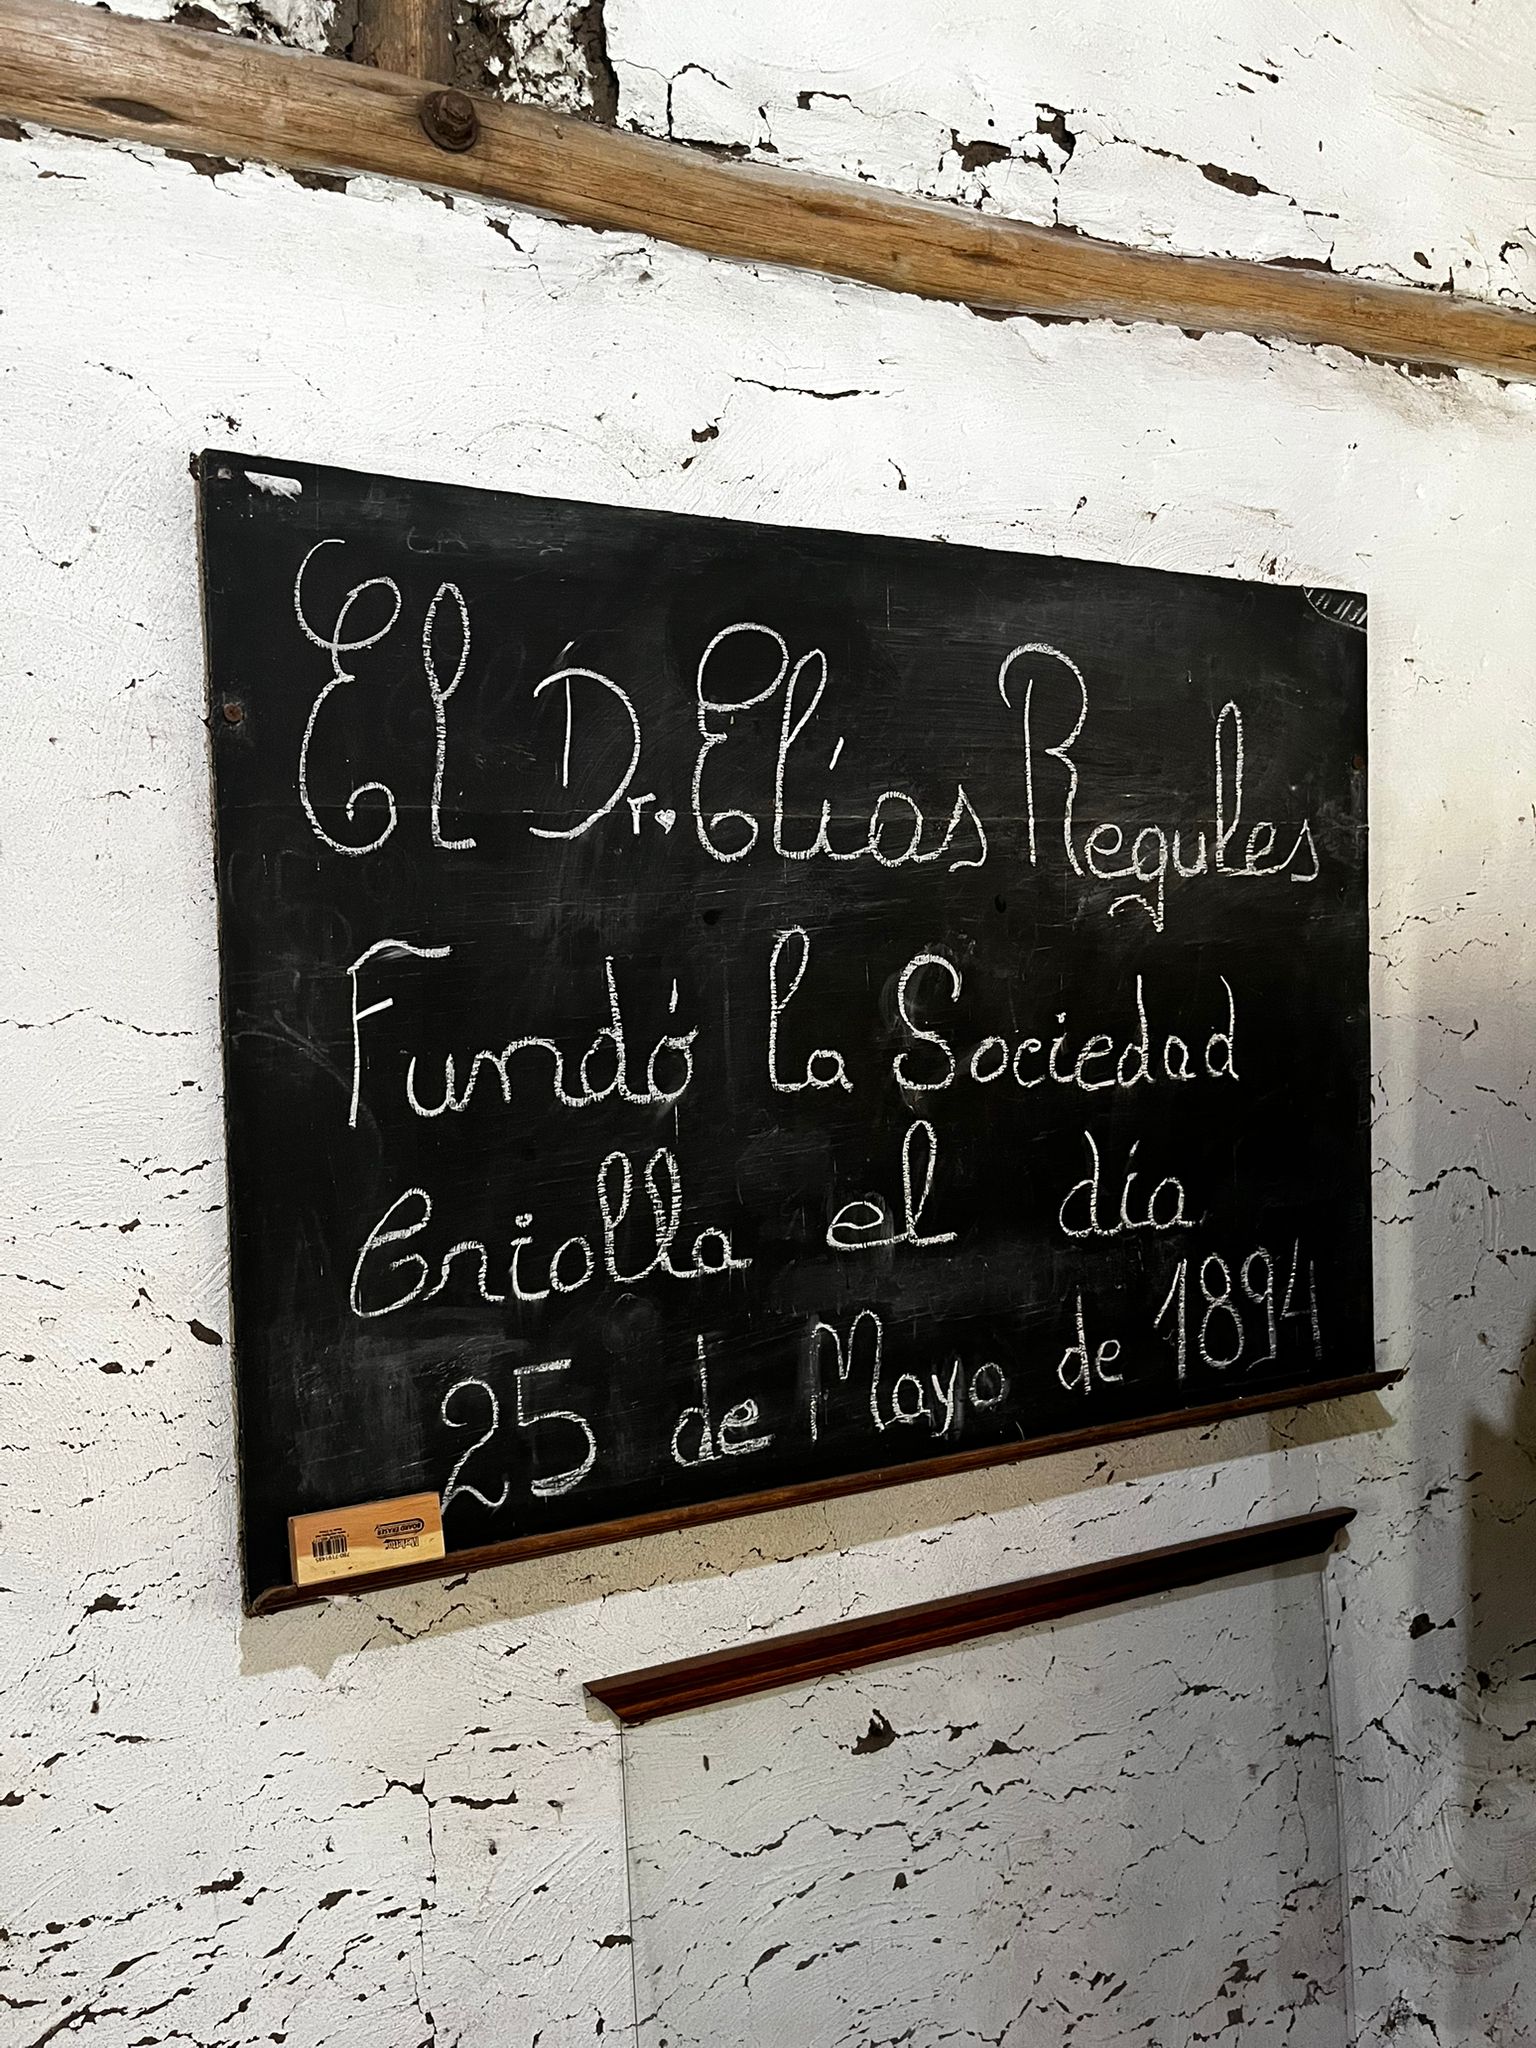 El Dr. Elías Regules
Fundó la Sociedad
Criolla el día
25 de Mayo de 1894
BOARD ERASER